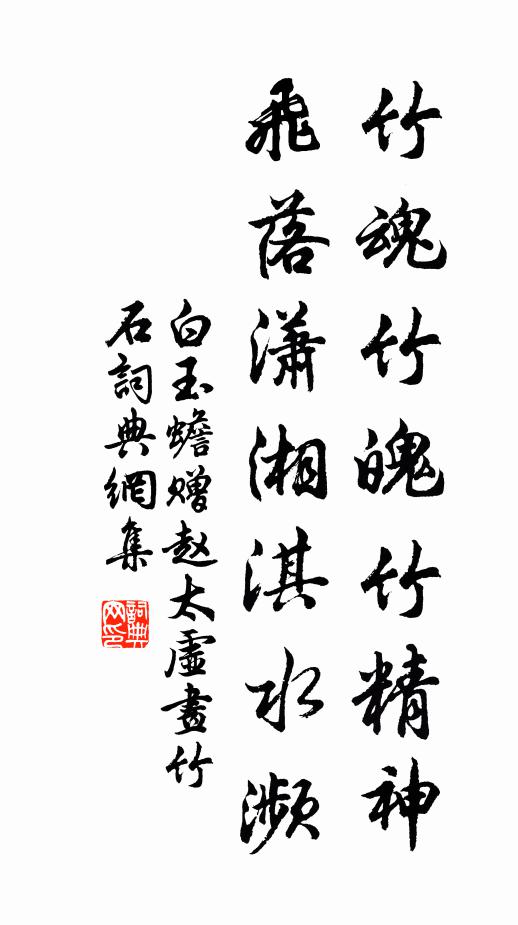 竹魂竹魄竹精神
飛落瀟湘淇水瀕
白玉蟾赠赵太虛畫竹
石詞典網集
詞典
网印